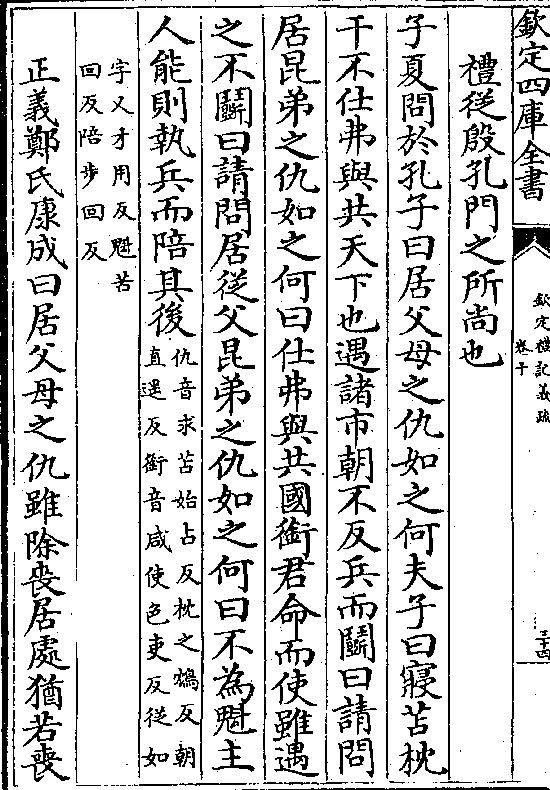 欽定四庫全書
欽定禮記義疏
卷十
三十四
禮從殷孔門之所尚也
子夏問於孔子曰居父母之仇如之何夫子曰寢苫枕
干不仕弗與共天下也遇諸市朝不反兵而鬭曰請問
居昆弟之仇如之何曰仕弗與共國銜君命而使雖遇
之不鬭曰請問居從父昆弟之仇如之何曰不為魁主
人能則執兵而陪其後
仇音求苫始占反枕之鴆反朝
直遥反銜音咸使色吏反從如
字又才用反魁苦
回反陪步回反
正義鄭氏康成曰居父母之仇雖除喪居處猶若喪